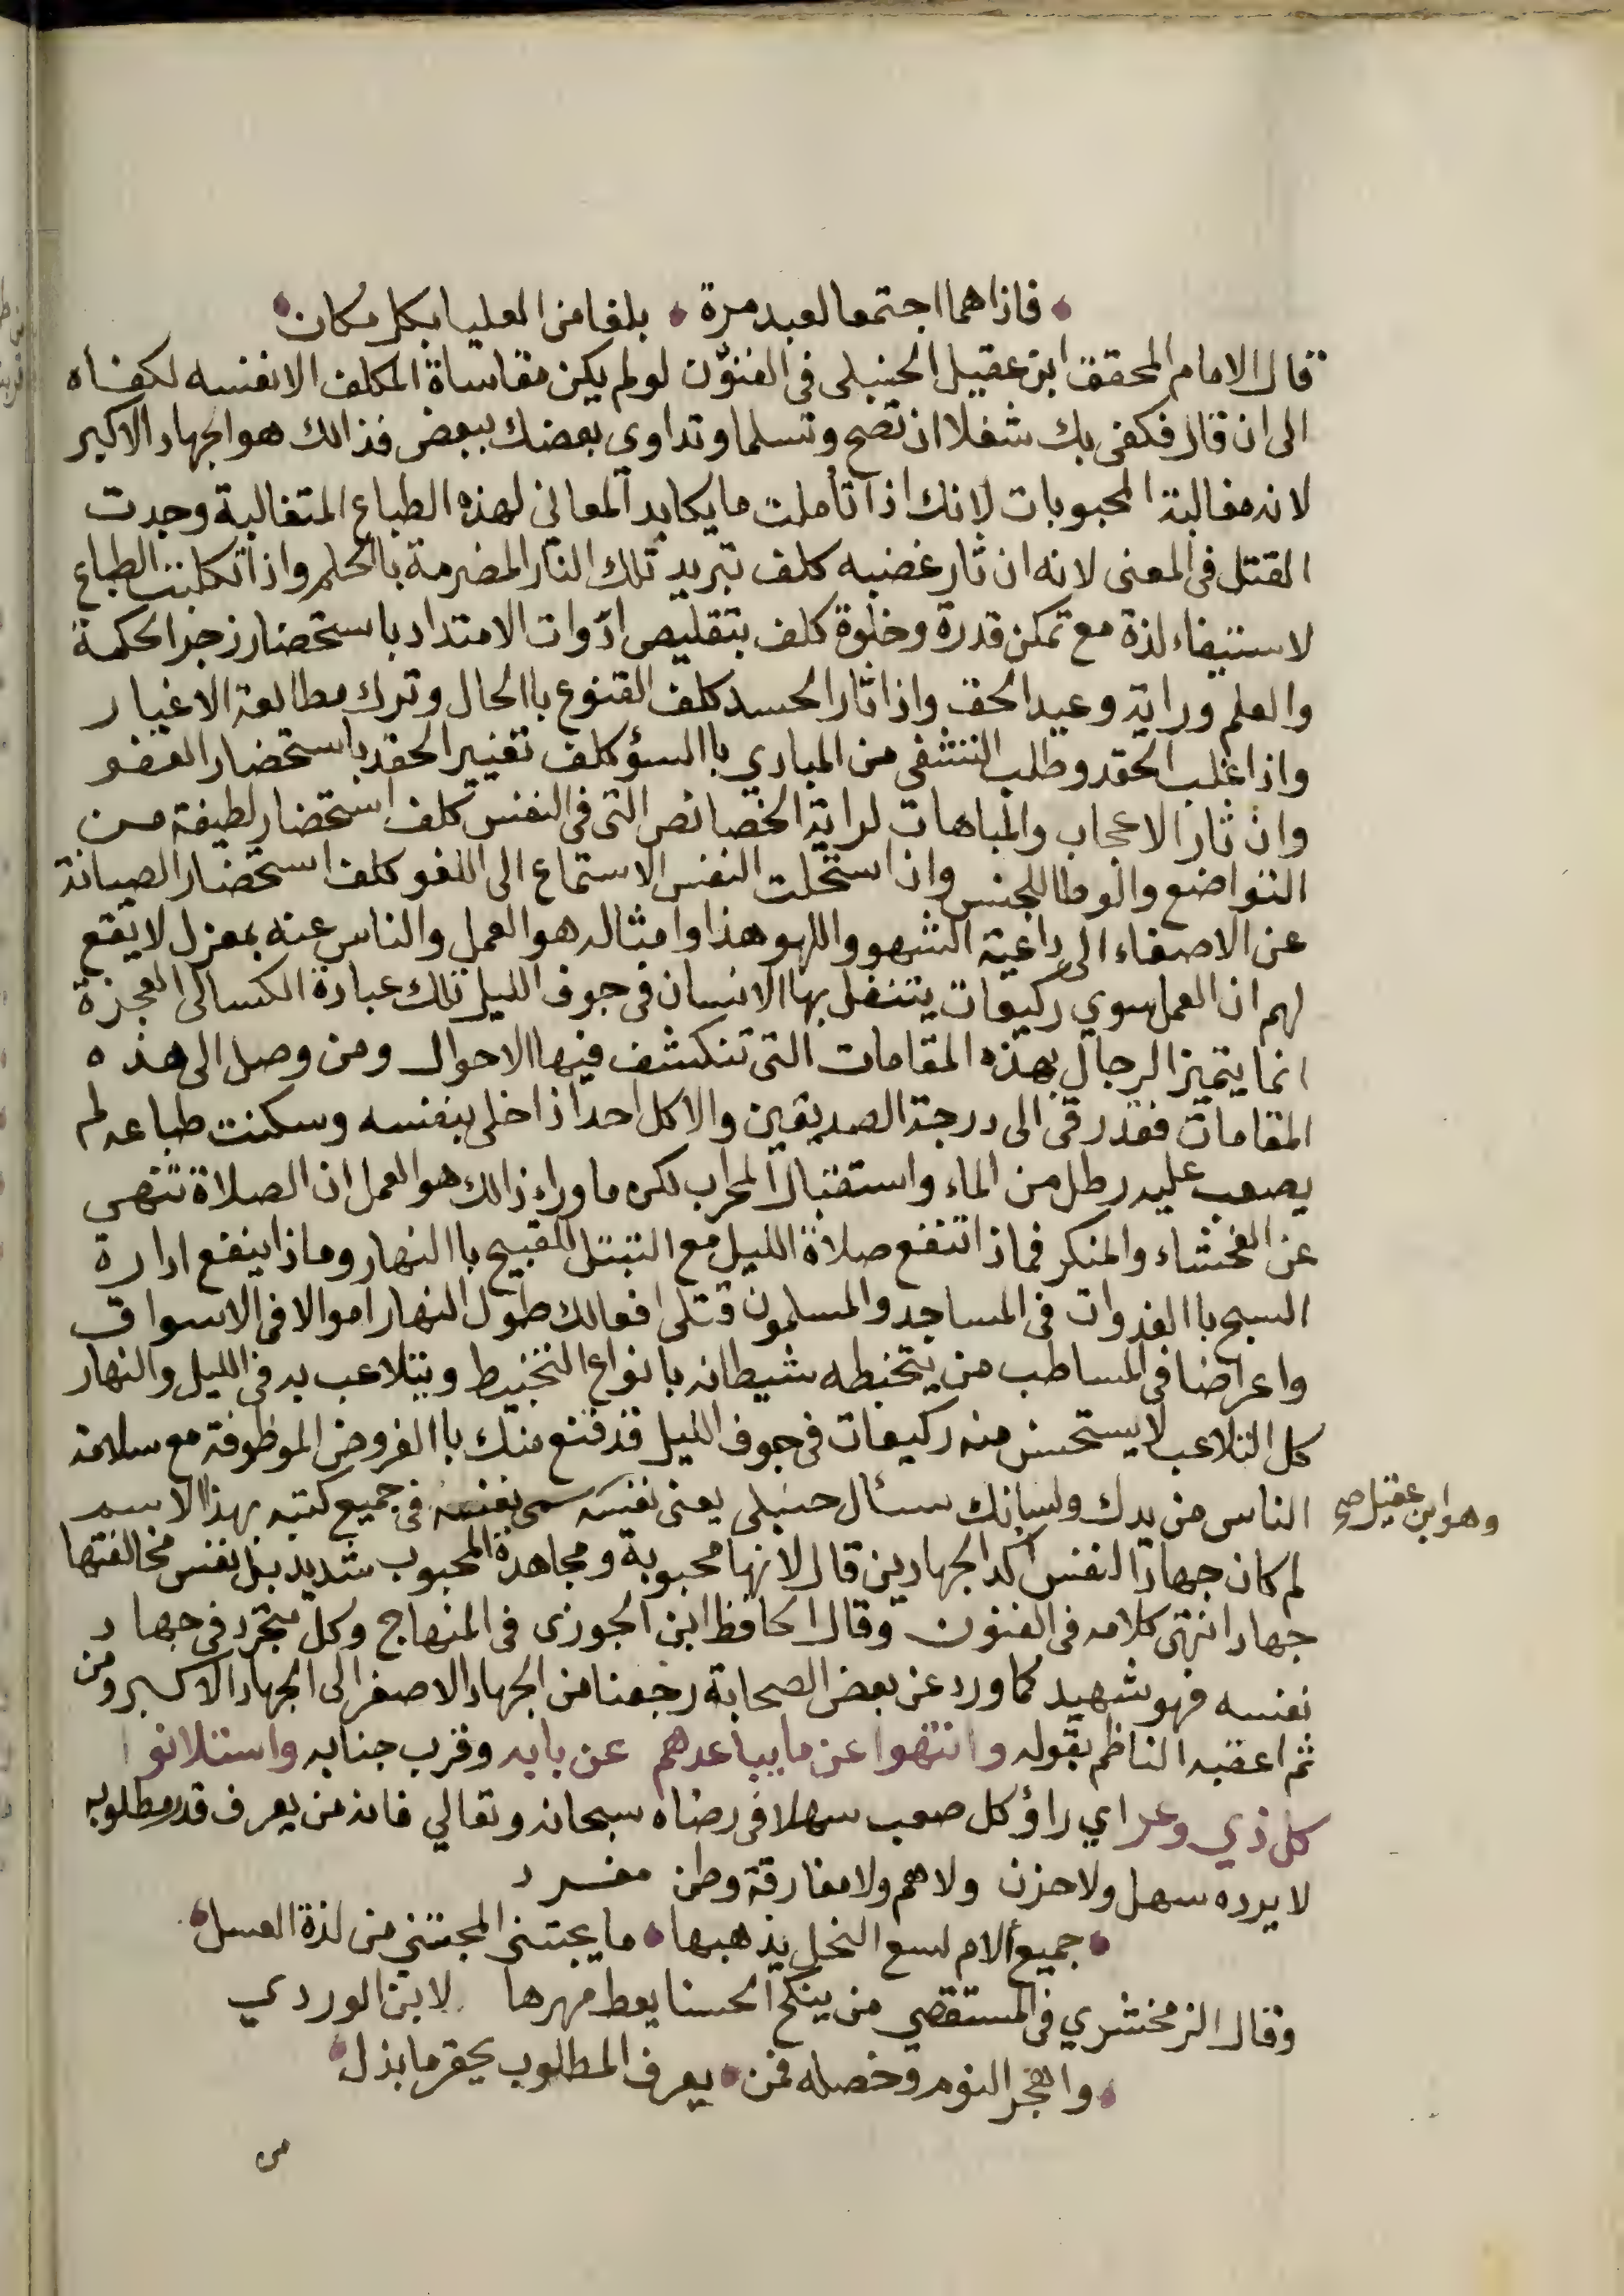 فاذا هما اجتمعا لعبد مرة بلغا من العليا بكل مكان
قال الامام المحقق ابن عقيل الحنبلي في الفنون لو لم يكن مقاساة المكلف الا نفسه لكفاه
الى ان قال فكفى بك شغلا ان تصح وتسلما وتداوى بعضك ببعض فذالك هو الجهاد الاكبر
لانه مغالبة المحبوبات لانك اذا تأملت ما يكابد المعاني لهذه الطباع المتغالبة وجدت
القتل في المعنى لانه ان ثار غضبه كلف تبريد تلك النار المضرمة باالحلم واذا تكلبت الطباع
لاستيفاء لذة مع تمكن قدرة وخلوة كلف بتقليص ادوات الامتداد باستحضار زجر الحكمة
والعلم وراية وعيد الحق واذا ثار الحسد كلف القنوع باالحال وترك مطالعة الاغيار
واذا غلب الحقد وطلب التشفي من المبادي باالسؤ كلف تغيير الحقد باستحضار العفو
وان ثار الاعجاب والمباهات لراية الخصائص التي في النفس كلف استحضار لطيفة من
التواضع والوطا للجنس واذا استحلت النفس الاستماع الى اللغو كلف استحضار الصيانة
عن الاصغاء الى داغية الشهو واللهو هذا وامثاله هو العمل والناس عنه بمعزل لا يقع
لهم ان العمل سوي ركيعات يتنفل بها الانسان في جوف الليل تلك عبادة الكسالى العجزة
انما يتميز الرجال بهذه المقامات التي تنكشف فيها الاحوال ومن وصل الى هذه
المقامات فقد رقى الى درجة الصديقين والا كل احد اذا خلى بنفسه وسكنت طباعه لم
يصعب عليه رطل من الماء واستقبال المحراب لكن ما وراء ذالك هو العمل ان الصلاة تنهى
عن الفحشاء والمنكر فماذا تنفع صلاة الليل مع التبتل للقبيح باالنهار وماذا ينفع ادارة
السبح باالغدوات في المساجد والمسلمون قتلى افعالك طول النهار اموالا في الاسواق
واعراضا في المساطب من يتخبطه شيطانه بانواع التخبيط ويتلاعب به في الليل والنهار
كل التلاعب لا يستحسن منه ركيعات في جوف الليل قد قنع منك باالفروض الموظوفة مع سلامة
الناس من يدك ولسانك سئال حنبلي يعني نفسه سمى نفسه في جميع كتبه بهذا الاسم
وهو ابن عقيل صح
لم كان جهاد النفس اكد الجهادين قال لانها محبوبة ومجاهدة المحبوب شديد بل نفس مخالفتها
جهاد انتهى كلامه في الفنون وقال الحافظ ابن الجوزى في المنهاج وكل متجرد في جهاد
نفسه فهو شهيد كما ورد عن بعض الصحابة رجعنا من الجهاد الاصغر الى الجهاد الاكبر ومن
ثم اعقبه الناظم بقوله وانتهوا عن ما يباعدهم عن بابه وقرب جنابه واستلانوا
كل ذي وعر اي راؤ كل صعب سهلا في رضاه سبحانه وتعالي فانه من يعرف قدر مطلوبه
لا يرده سهل ولا حزن ولا هم ولا مفارقة وطن مفرد
جميع الام لسع النحل يذهبها ما يجتني المجتني من لذة العسل
وقال الزمخشري في المستقصي من ينكح الحسنا يعط مهرها لابن الوردي
واهجر النوم وخصله فمن يعرف المطلوب يحقر ما بذل
من